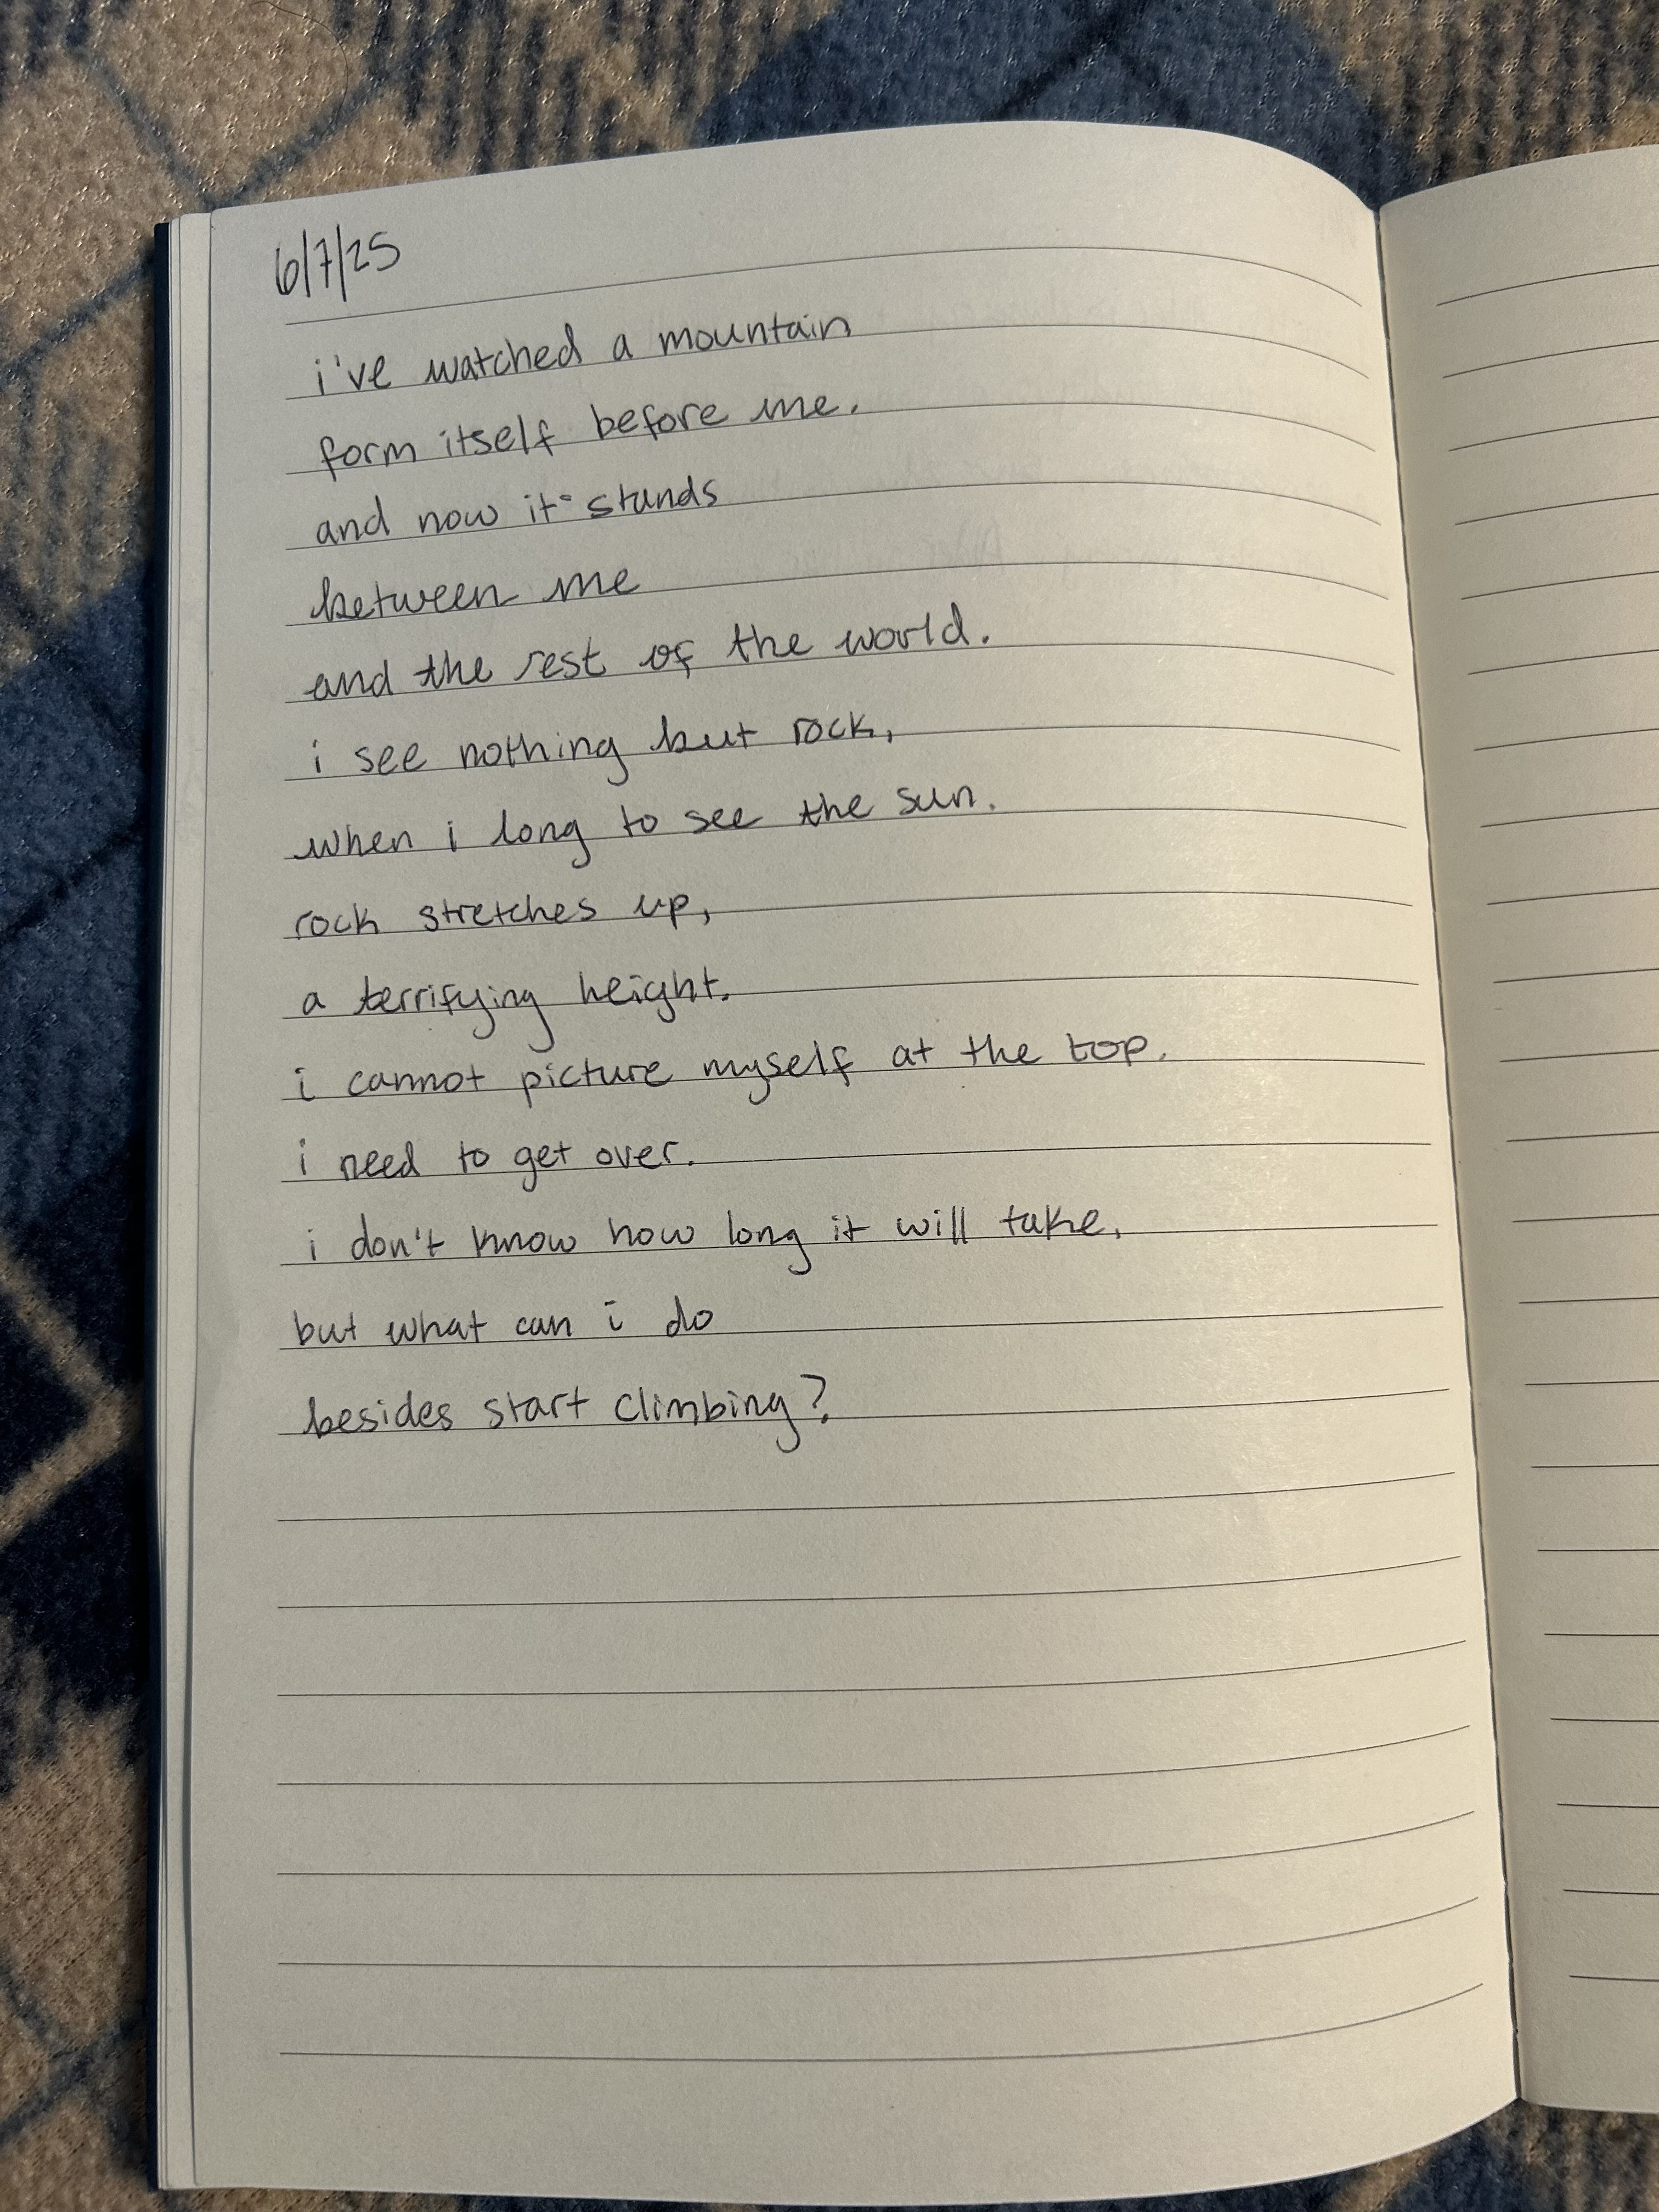 6/7/25
i've watched a mountain
form itself before me.
and now it stands
between me
and the rest of the world.
i see nothing but rock,
when i long to see the sun.
rock stretches up,
a terrifying height.
i cannot picture myself at the top.
i need to get over.
i don't know how long it will take,
but what can i do
besides start climbing?